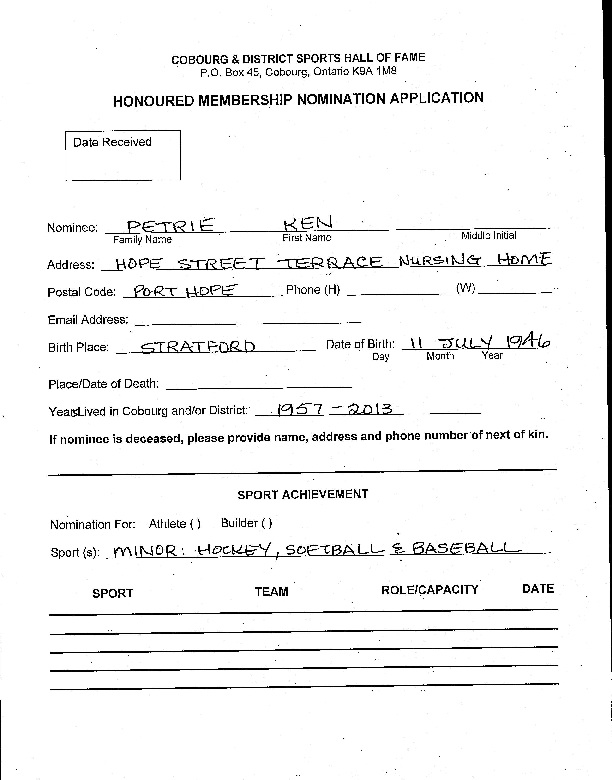 COBOURG & DISTRICT SPORTS HALL OF FAME
P.O. Box 45, Cobourg, Ontario K9A 1M8
HONOURED MEMBERSHIP NOMINATION APPLICATION
Date Received
Nominee: PETRIE KEN
Family Name First Name Middle Initial
Address: HOPE STREET TERRACE NURSING HOME
Postal Code: PORT HOPE Phone (H) (W)
Email Address:
Birth Place: STRATFORD Date of Birth: 11 JULY 1946
Day Month Year
Place/Date of Death:
YearsLived in Cobourg and/or District: 1957 - 2013
If nominee is deceased, please provide name, address and phone number of next of kin.
SPORT ACHIEVEMENT
Nomination For: Athlete ( ) Builder ( )
Sport (s): MINOR: HOCKEY, SOFTBALL & BASEBALL
SPORT TEAM ROLE/CAPACITY DATE